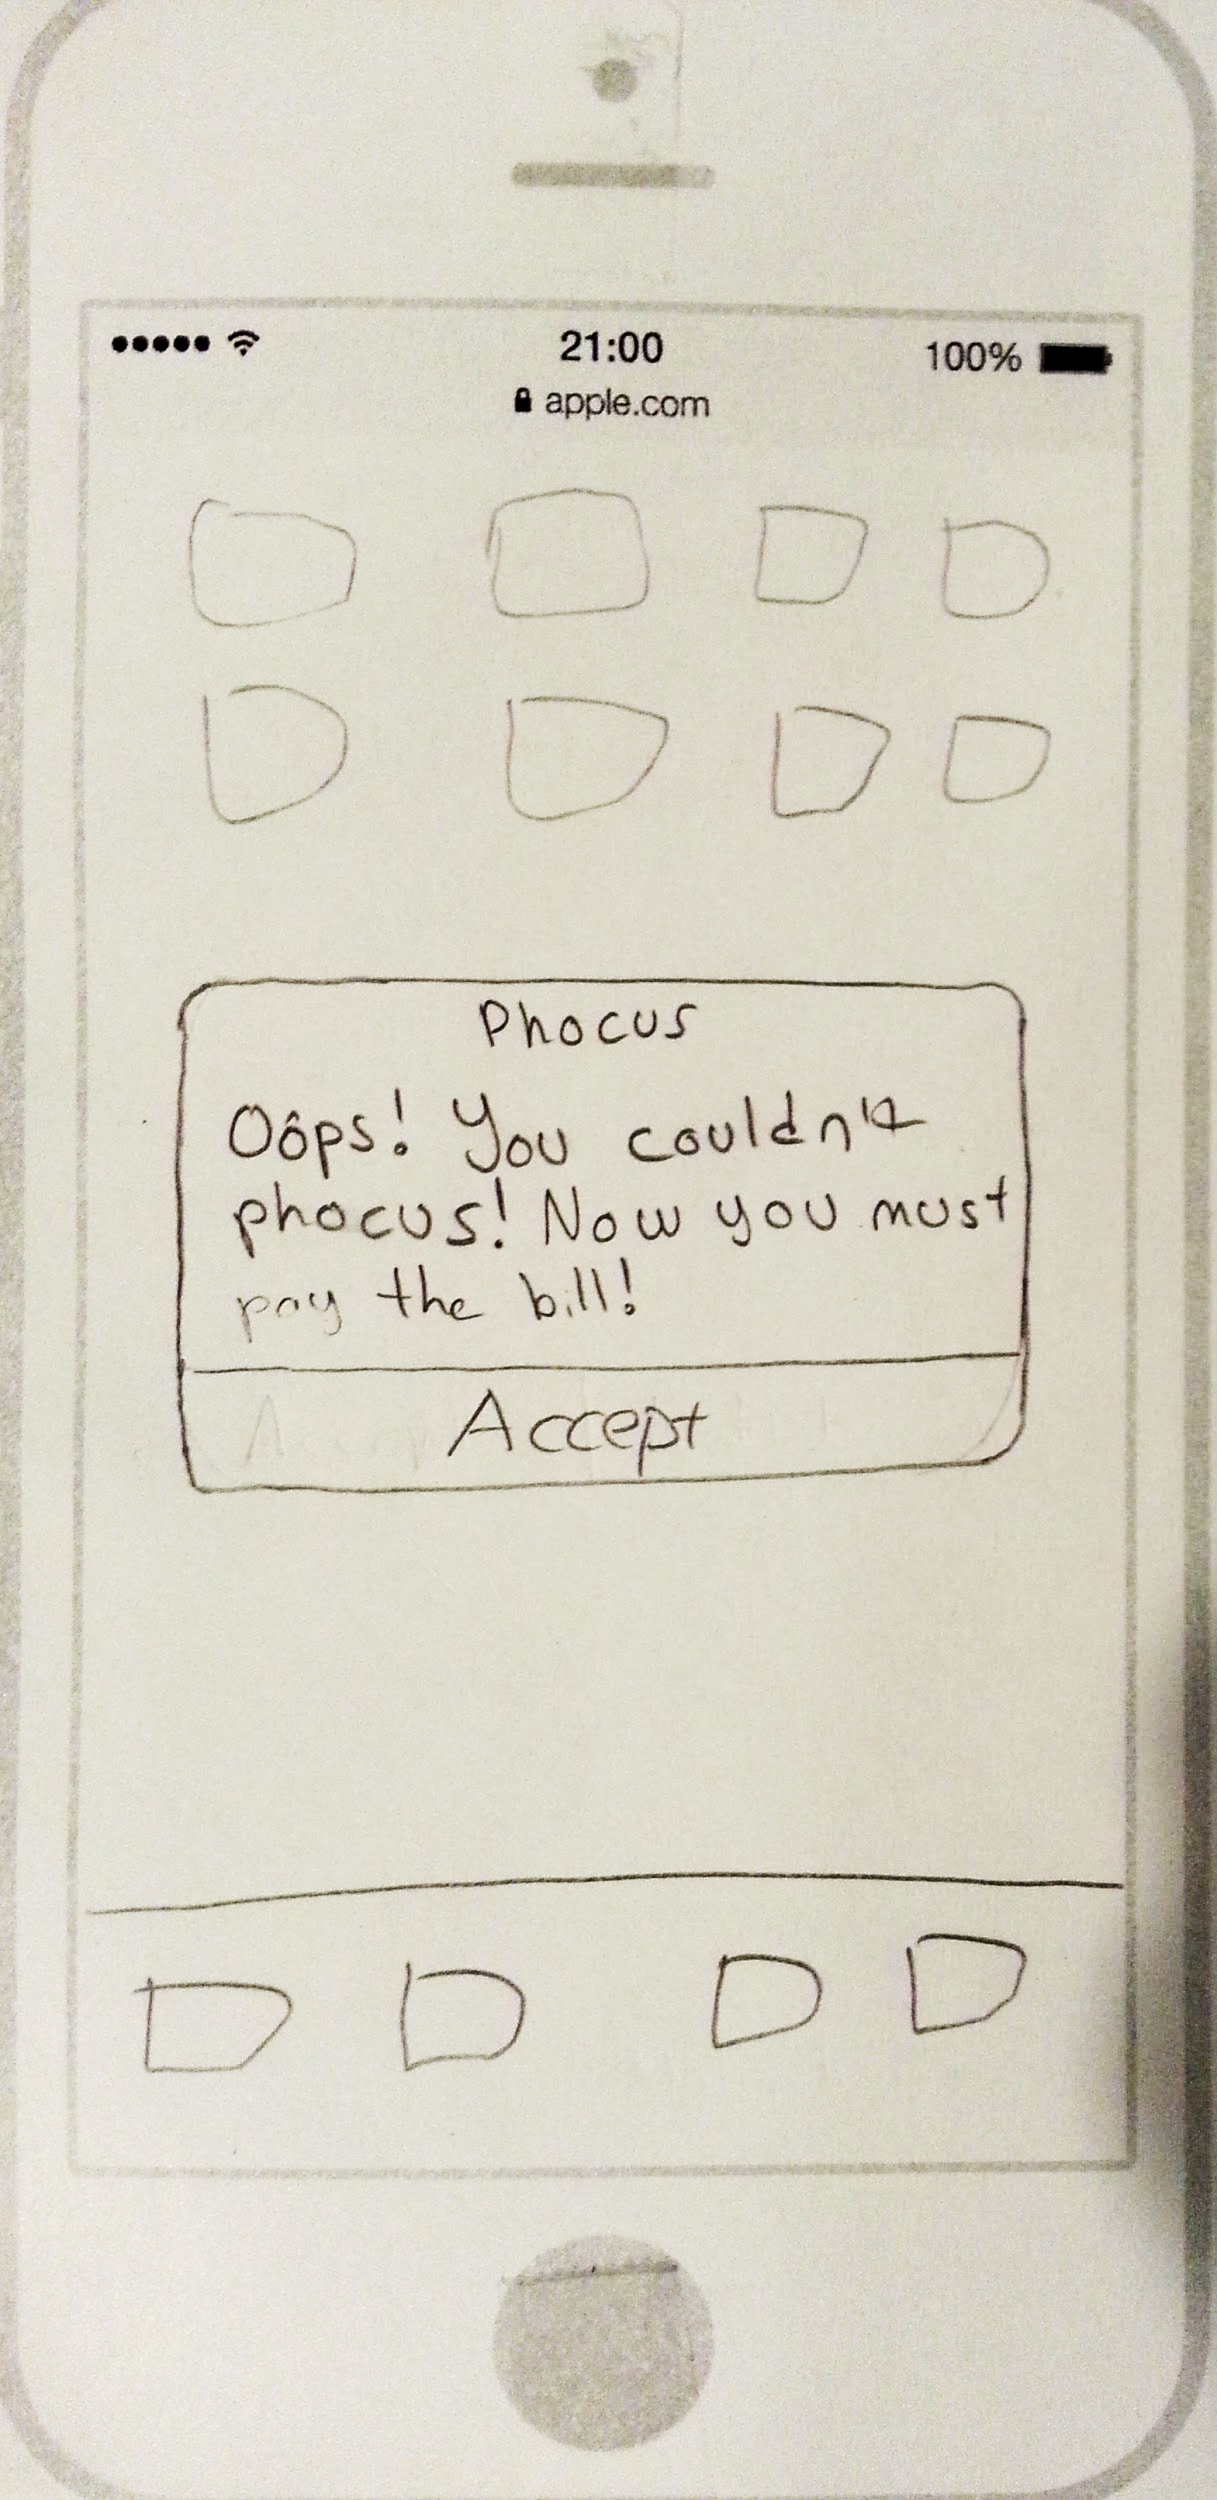 21:00
100%
apple.com
Phocus
Oops! You couldn't
phocus! Now you must
pay the bill!
Accept